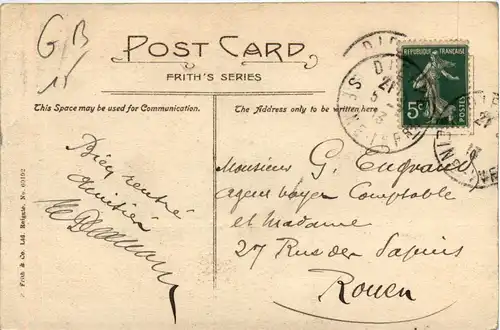 GB
POST CARD
FRITH'S SERIES
This Space may be used for Communication.
The Address only to be written here.
REPUBLIQUE FRANÇAISE
5c
POSTES
Bien rentré
Amitiés
Monsieur G.
agent voyer Comptable
et Madame
27 Rue des Sapins
Rouen
F. Frith & Co. Ltd. Reigate. No. 60192